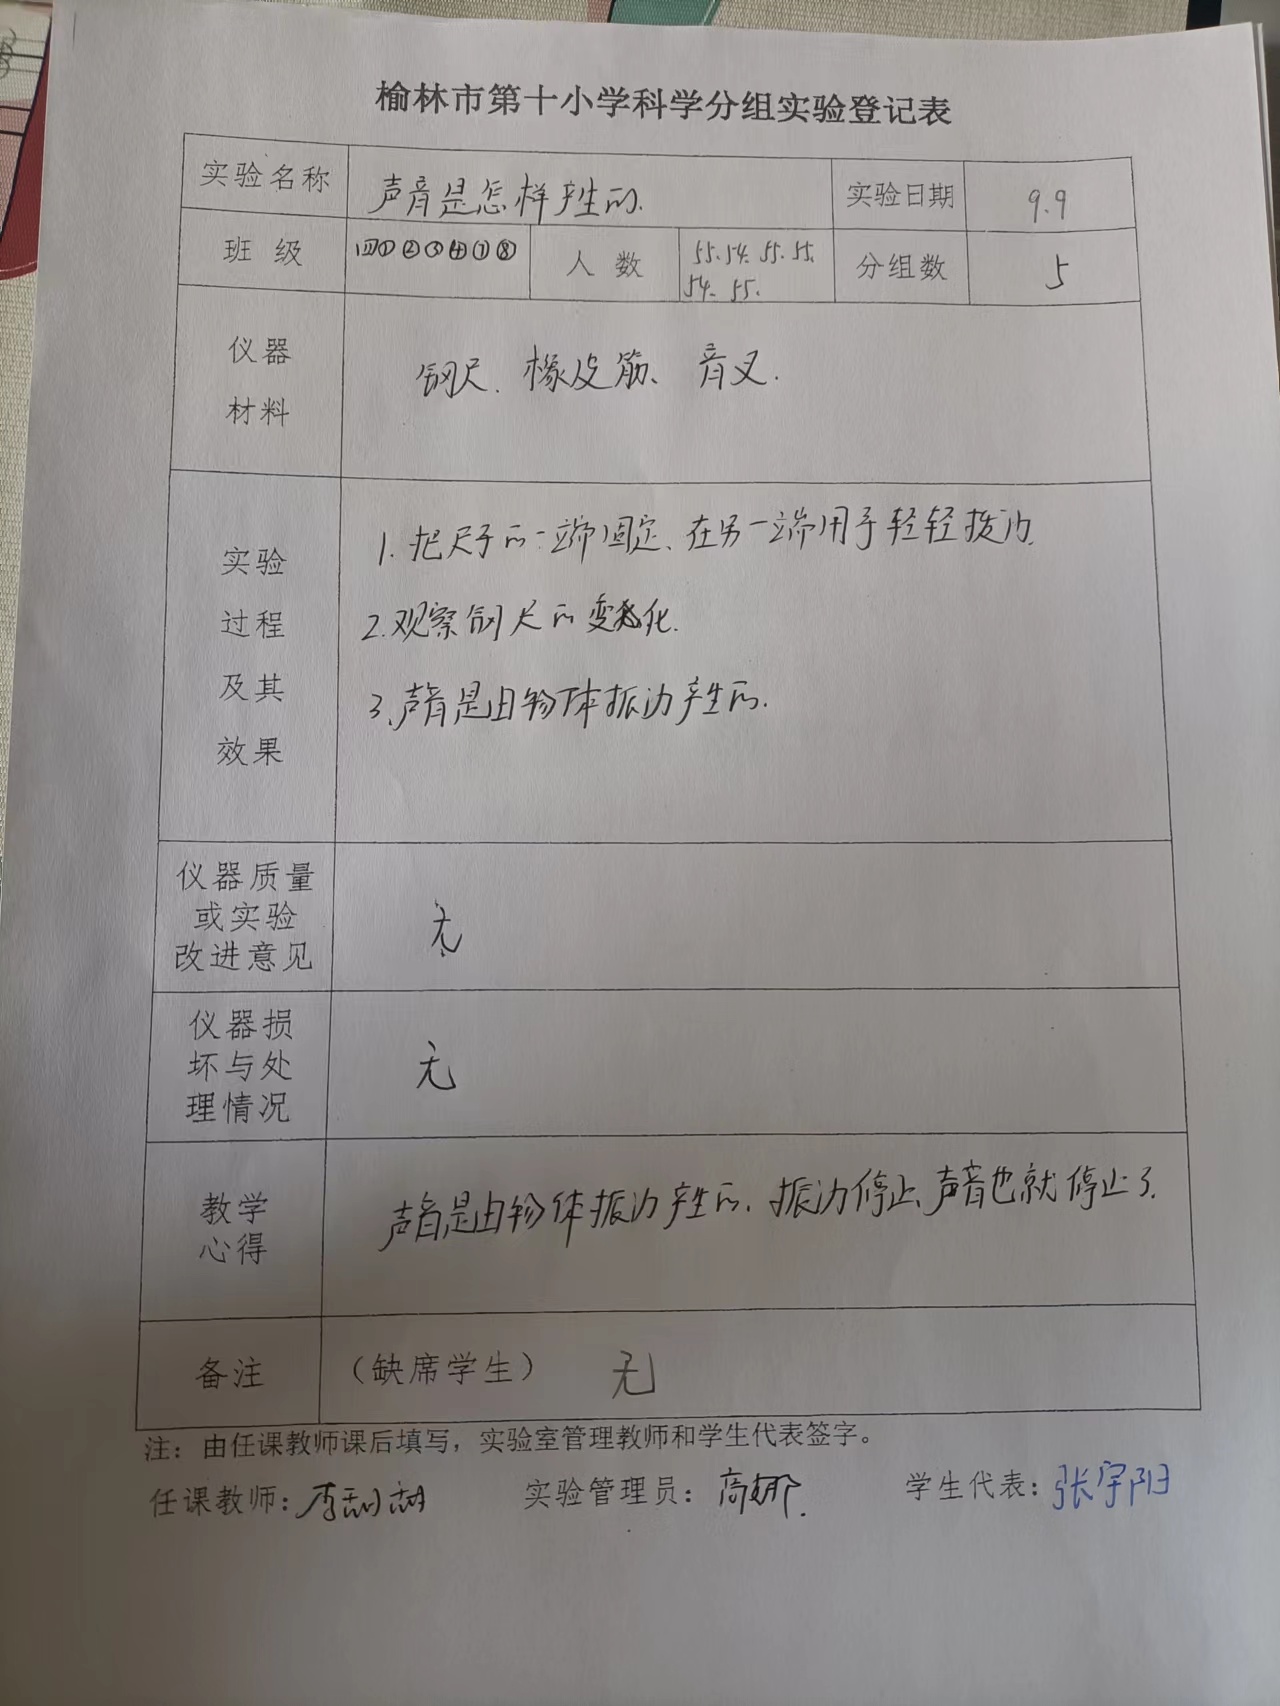 榆林市第十小学科学分组实验登记表
实验名称 声音是怎样产生的. 实验日期 9.9
班 级 四①②③④⑦⑧ 人 数 55.54.55.55. 分组数 5
54.55.
仪器
材料
钢尺、橡皮筋、音叉.
实验
过程
及其
效果
1.把尺子的一端固定、在另一端用手轻轻拨动.
2.观察钢尺的变化.
3.声音是由物体振动产生的.
仪器质量
或实验
改进意见
无
仪器损
坏与处
理情况
无
教学
心得
声音是由物体振动产生的、振动停止、声音也就停止了.
备注 （缺席学生） 无
注：由任课教师课后填写，实验室管理教师和学生代表签字。
任课教师： 实验管理员：高娜. 学生代表：张宇阳